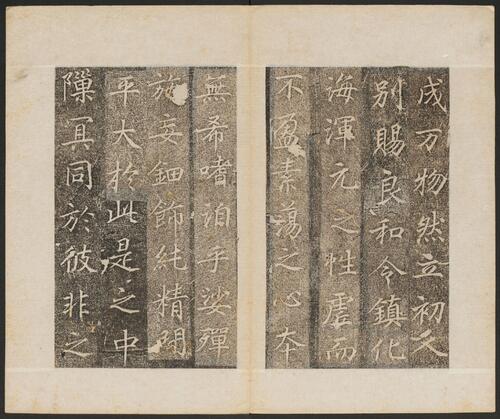 成万物然立初人
别賜良和令鎮化
海渾元之性虛而
不盈素蕩之心本
無希嗜洎乎娑殫
施妄鈿飾純精閒
平大於此是之中
隟冥同於彼非之